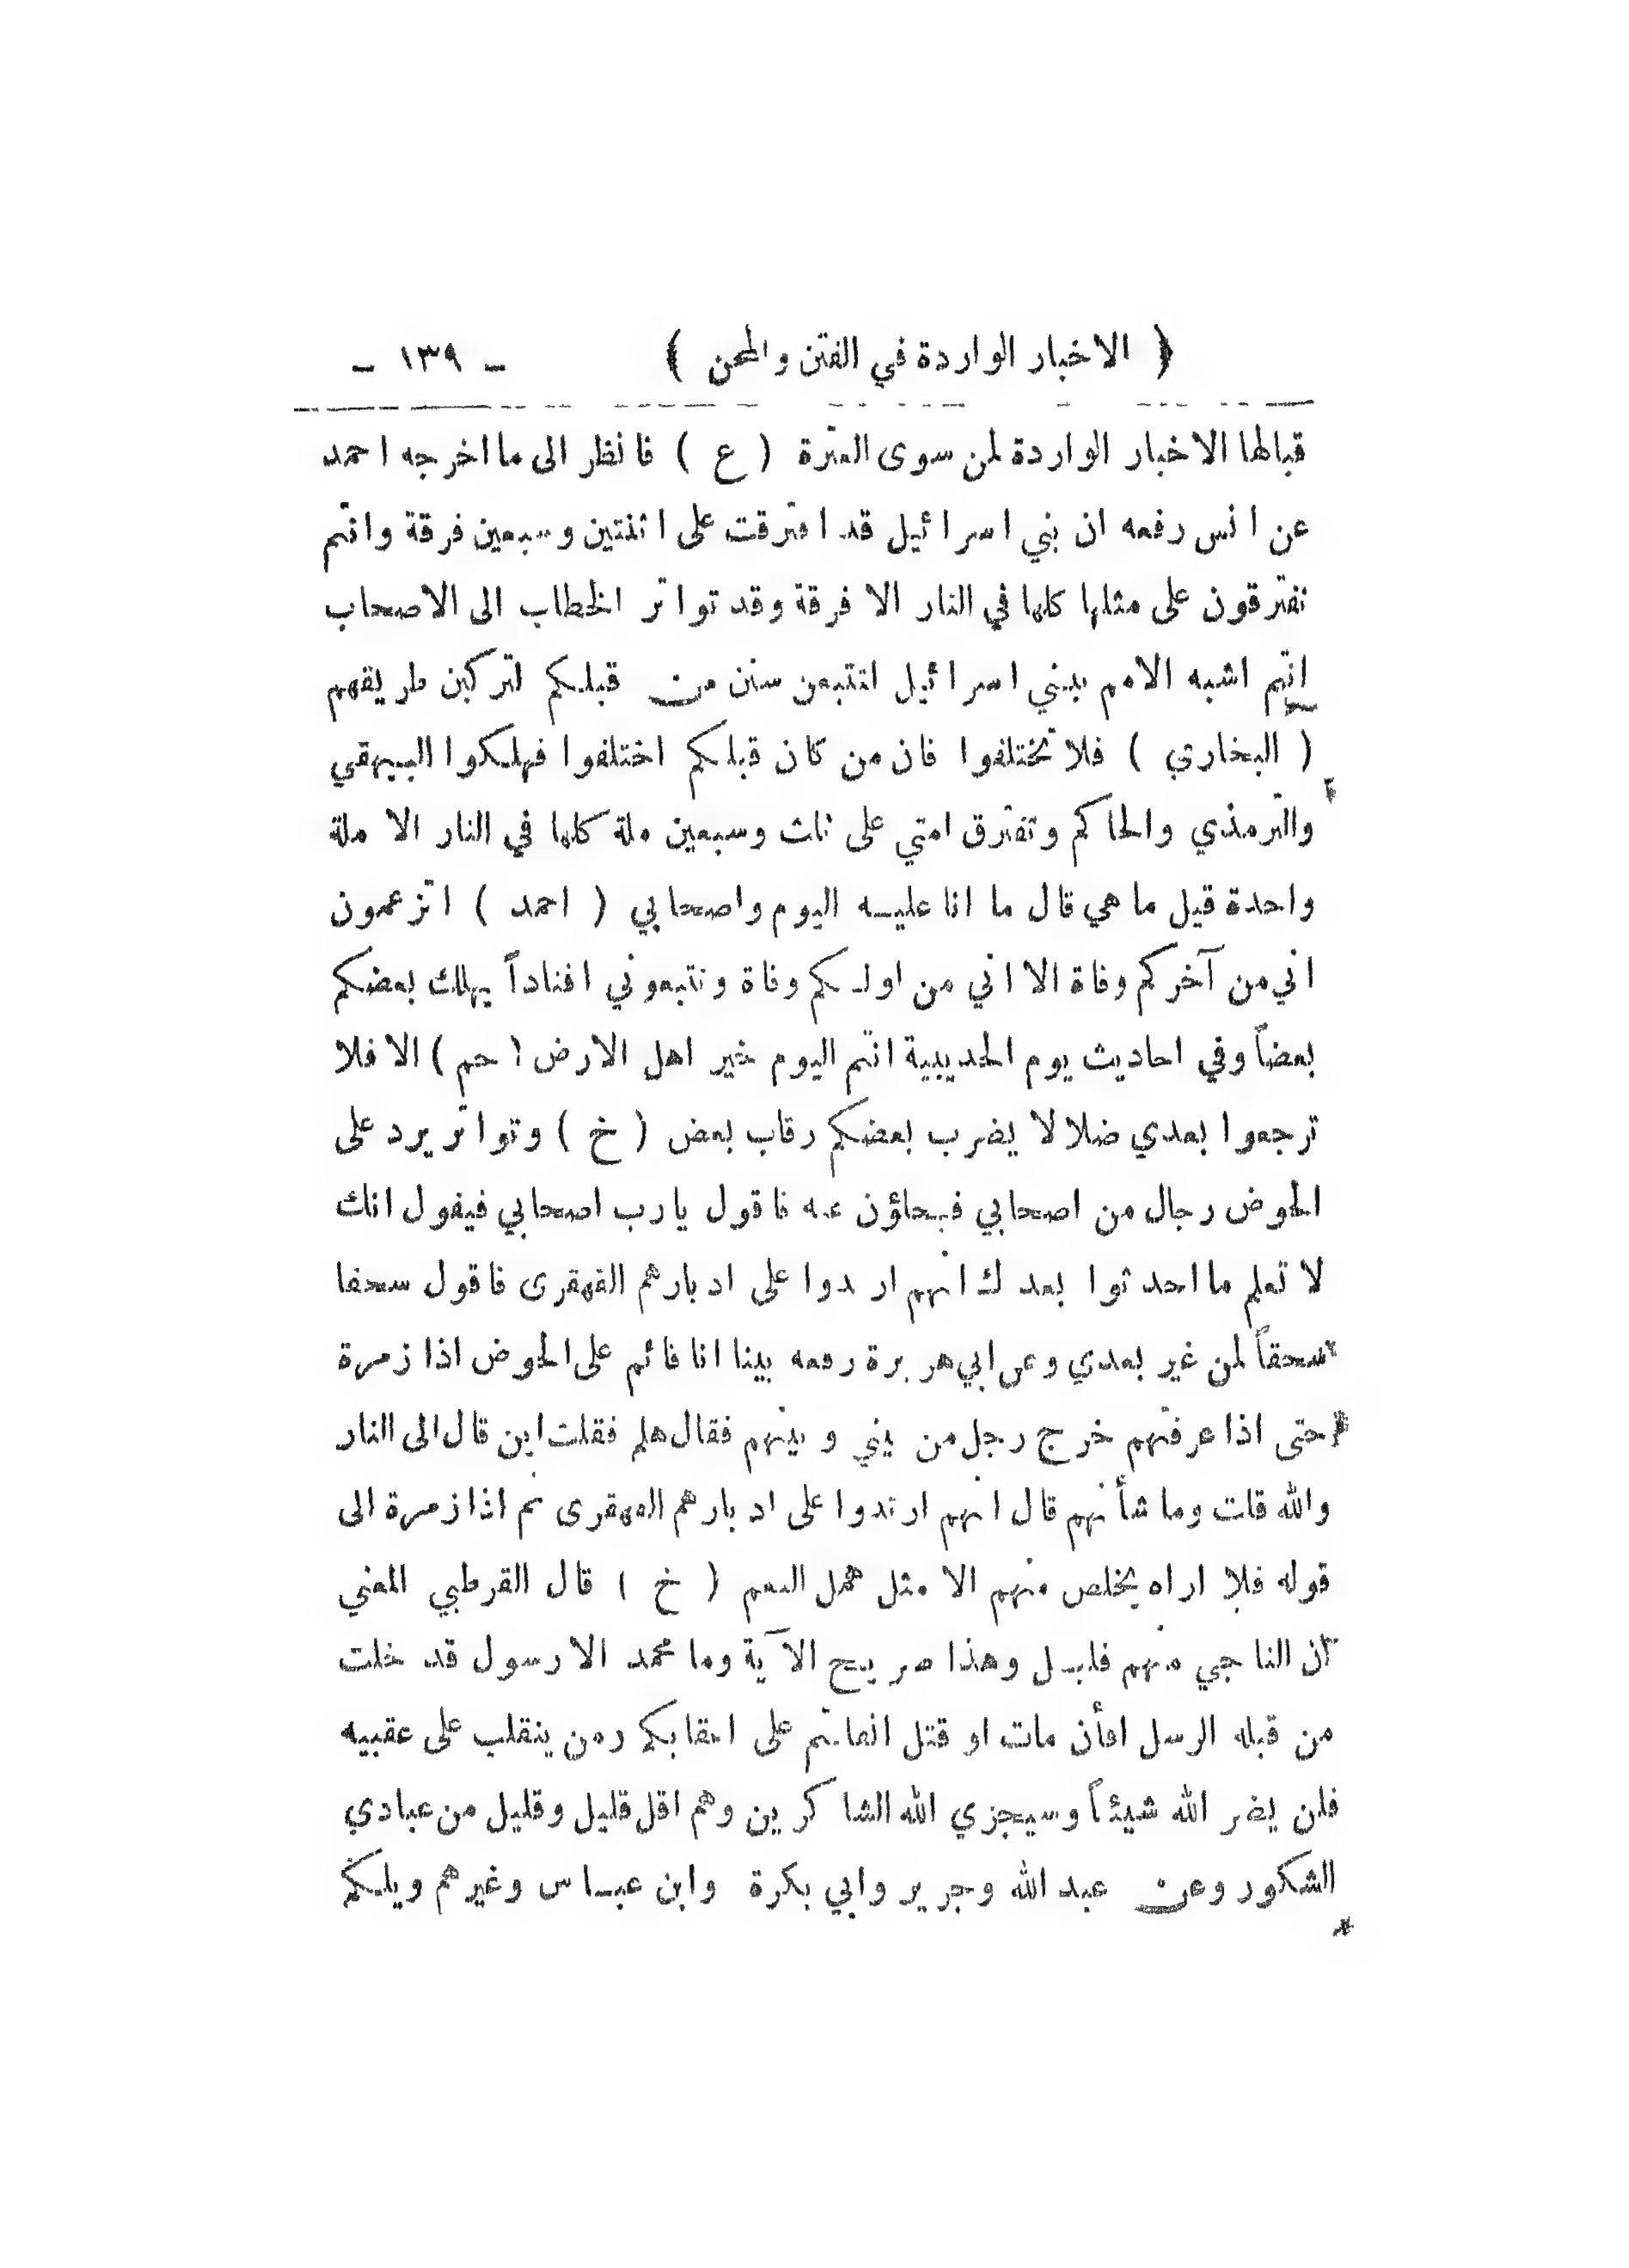 ﴿ الاخبار الواردة في الفتن والمحن ﴾ - ١٣٩ -
قبالها الاخبار الواردة لمن سوى العترة ( ع ) فانظر الى ما اخرجه احمد
عن انس رفعه ان بني اسرائيل قد افترقت على اثنتين وسبعين فرقة وانتم
تفترقون على مثلها كلها في النار الا فرقة وقد تواتر الخطاب الى الاصحاب
انتم اشبه الامم ببني اسرائيل لتتبعن سنن من قبلكم لتركبن طريقهم
( البخاري ) فلا تختلفوا فان من كان قبلكم اختلفوا فهلكوا البيهقي
والترمذي والحاكم وتفترق امتي على ثلث وسبعين ملة كلها في النار الا ملة
واحدة قيل ما هي قال ما انا عليه اليوم واصحابي ( احمد ) اتزعمون
اني من آخركم وفاة الا اني من اولكم وفاة وتتبعوني افناداً يهلك بعضكم
بعضاً وفي احاديث يوم الحديبية انتم اليوم خير اهل الارض ( حم ) الا فلا
ترجعوا بعدي ضلالا يضرب بعضكم رقاب بعض ( خ ) وتواتر يرد على
الحوض رجال من اصحابي فيحلؤن عنه فاقول يارب اصحابي فيقول انك
لا تعلم ما احدثوا بعدك انهم ارتدوا على ادبارهم القهقرى فاقول سحقا
سحقاً لمن غير بعدي وعن ابي هريرة رفعه بينا انا قائم على الحوض اذا زمرة
حتى اذا عرفتهم خرج رجل من بيني وبينهم فقال هلم فقلت اين قال الى النار
والله قلت وما شأنهم قال انهم ارتدوا على ادبارهم القهقرى ثم اذا زمرة الى
قوله فلا اراه يخلص منهم الا مثل همل النعم ( خ ) قال القرطبي المعني
ان الناجي منهم قليل وهذا صريح الآية وما محمد الا رسول قد خلت
من قبله الرسل افأن مات او قتل انقلبتم على اعقابكم ومن ينقلب على عقبيه
فلن يضر الله شيئاً وسيجزي الله الشاكرين وهم اقل قليل وقليل من عبادي
الشكور وعن عبد الله وجرير وابي بكرة وابن عباس وغيرهم ويلكم